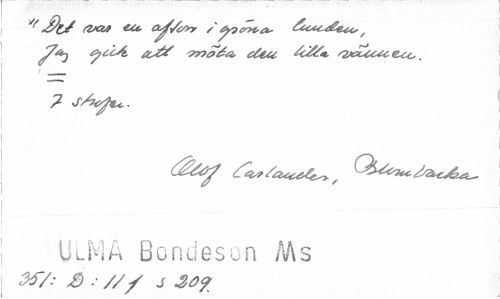 "Det var en afton i gröna lunden,
Jag gick att möta den lilla vännen.
=
7 strofer.
Olof Carlander, Blombacka
ULMA Bondeson Ms
351: D: 11 f s 209.